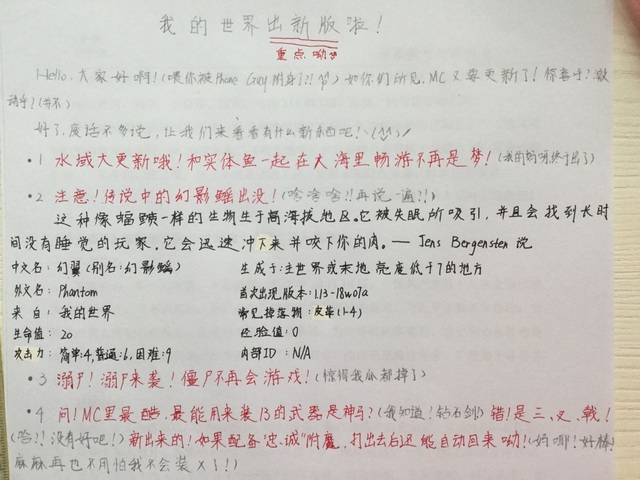 我的世界出新版啦!
重点呦
Hello,大家好啊!(喂你被Phone Guy附身了!!)如你们所见,MC又要更新了!惊喜乎?激
动乎?(并不)
好了,废话不多说,让我们来看看有什么新东西吧!
·1 水域大更新哦!和实体鱼一起在大海里畅游不再是梦!(我的妈呀终于出了)
·2 注意!传说中的幻影鳐出没!(啥啥啥!!再说一遍?!)
这种像蝙蝠一样的生物生于高海拔地区。它被失眠所吸引,并且会找到长时
间没有睡觉的玩家。它会迅速冲下来并咬下你的肉。—— Jens Bergensten 说
中文名:幻翼(别名:幻影鳐) 生成于:主世界或末地 亮度低于7的地方
外文名:Phantom 首次出现版本:1.13-18w07a
来自:我的世界 常见掉落物:皮革(1-4)
生命值:20 经验值:0
攻击力:简单:4,普通:6,困难:9 内部ID:N/A
·3 溺尸!溺尸来袭!僵尸不再会游戏!(惊得我瓜都掉了)
·4 问!MC里最酷、最能用来装13的武器是神马?(我知道!钻石剑)错!是三、叉、戟!
(啥?!没有好吧!)新出来的!如果配备"忠诚"附魔,打出去后还能自动回来呦!(妈哪!好棒!
麻麻再也不用怕我不会装X了!)